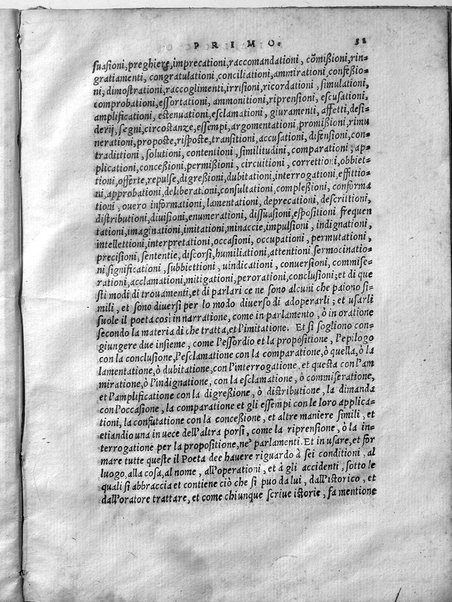 PRIMO. 52
suasioni, preghiere, imprecationi, raccomandationi, cõmißioni, rin-
gratiamenti, congratulationi, conciliationi, ammirationi, confeßio-
ni, dimostrationi, raccoglimenti, irrisioni, ricordationi, simulationi,
comprobationi, essortationi, ammonitioni, riprensioni, escusationi,
amplificationi, estenuationi, esclamationi, giuramenti, affetti, desi-
derij, segni, circostanze, essempi, argomentationi promißioni, rimu
nerationi, proposte, risposte, transitioni, accusationi, difensioni, con-
tradittioni, solutioni, contentioni, similitudini, comparationi, ap-
plicationi, conceßioni, permißioni, circuitioni, correttioni, obbiet-
tioni, offerte, repulse, digreßioni, dubitationi, interrogationi, effittio-
ni, approbationi, deliberationi, consultationi, compleßioni, conforma
tioni, ouero informationi, lamentationi, deprecationi, descrittioni,
distributioni, diuisioni, enumerationi, dissuasioni, espositioni frequen
tationi, imaginationi, imitationi, minaccie, impulsioni, indignationi,
intellettioni, interpretationi, occasioni, occupationi, permutationi,
precisioni, sententie, discorsi, humiliationi, attentioni, sermocinatio-
ni, significationi, subbiettioni, uindicationi, conuersioni, commise-
rationi, acclamationi, mitigationi, perorationi, conclusioni; et di que
sti modi di trouamenti, et di parlari ce ne sono alcuni che paiono si-
mili, et sono diuersi per lo modo diuerso di adoperarli, et usarli
suole il poeta cosi in narratione, come in parlamento, ò in oratione
secondo la materia di che tratta, et l'imitatione. Et si sogliono con-
giungere due insieme, come l'essordio et la propositione, l'epilogo
con la conclusione, l'esclamatione con la comparatione, ò quella, ò la
lamentatione, ò dubitatione, con l'interrogatione, et questa con l'am
miratione, ò l'indignatione, con la esclamatione, ò commiseratione,
et l'amplificatione con la digreßione, ò distributione, la dimanda
con l'occasione, la comparatione et gli essempi con le loro applica-
tioni, la confutatione con la conceßione, et altre maniere simili, et
etiandio una in uece dell'altra porsi, come la riprensione, ò la in-
terrogatione per la propositione, ne' parlamenti. Et in usare, et for
mare tutte queste il Poeta dee hauere riguardo à sei conditioni, al
luogo alla cosa, al nome, all'operationi, et à gli accidenti, sotto le
quali si abbraccia et contiene ciò che si puo da lui, dall'istorico, et
dall'oratore trattare, et come chiunque scriue istorie, fa mentione